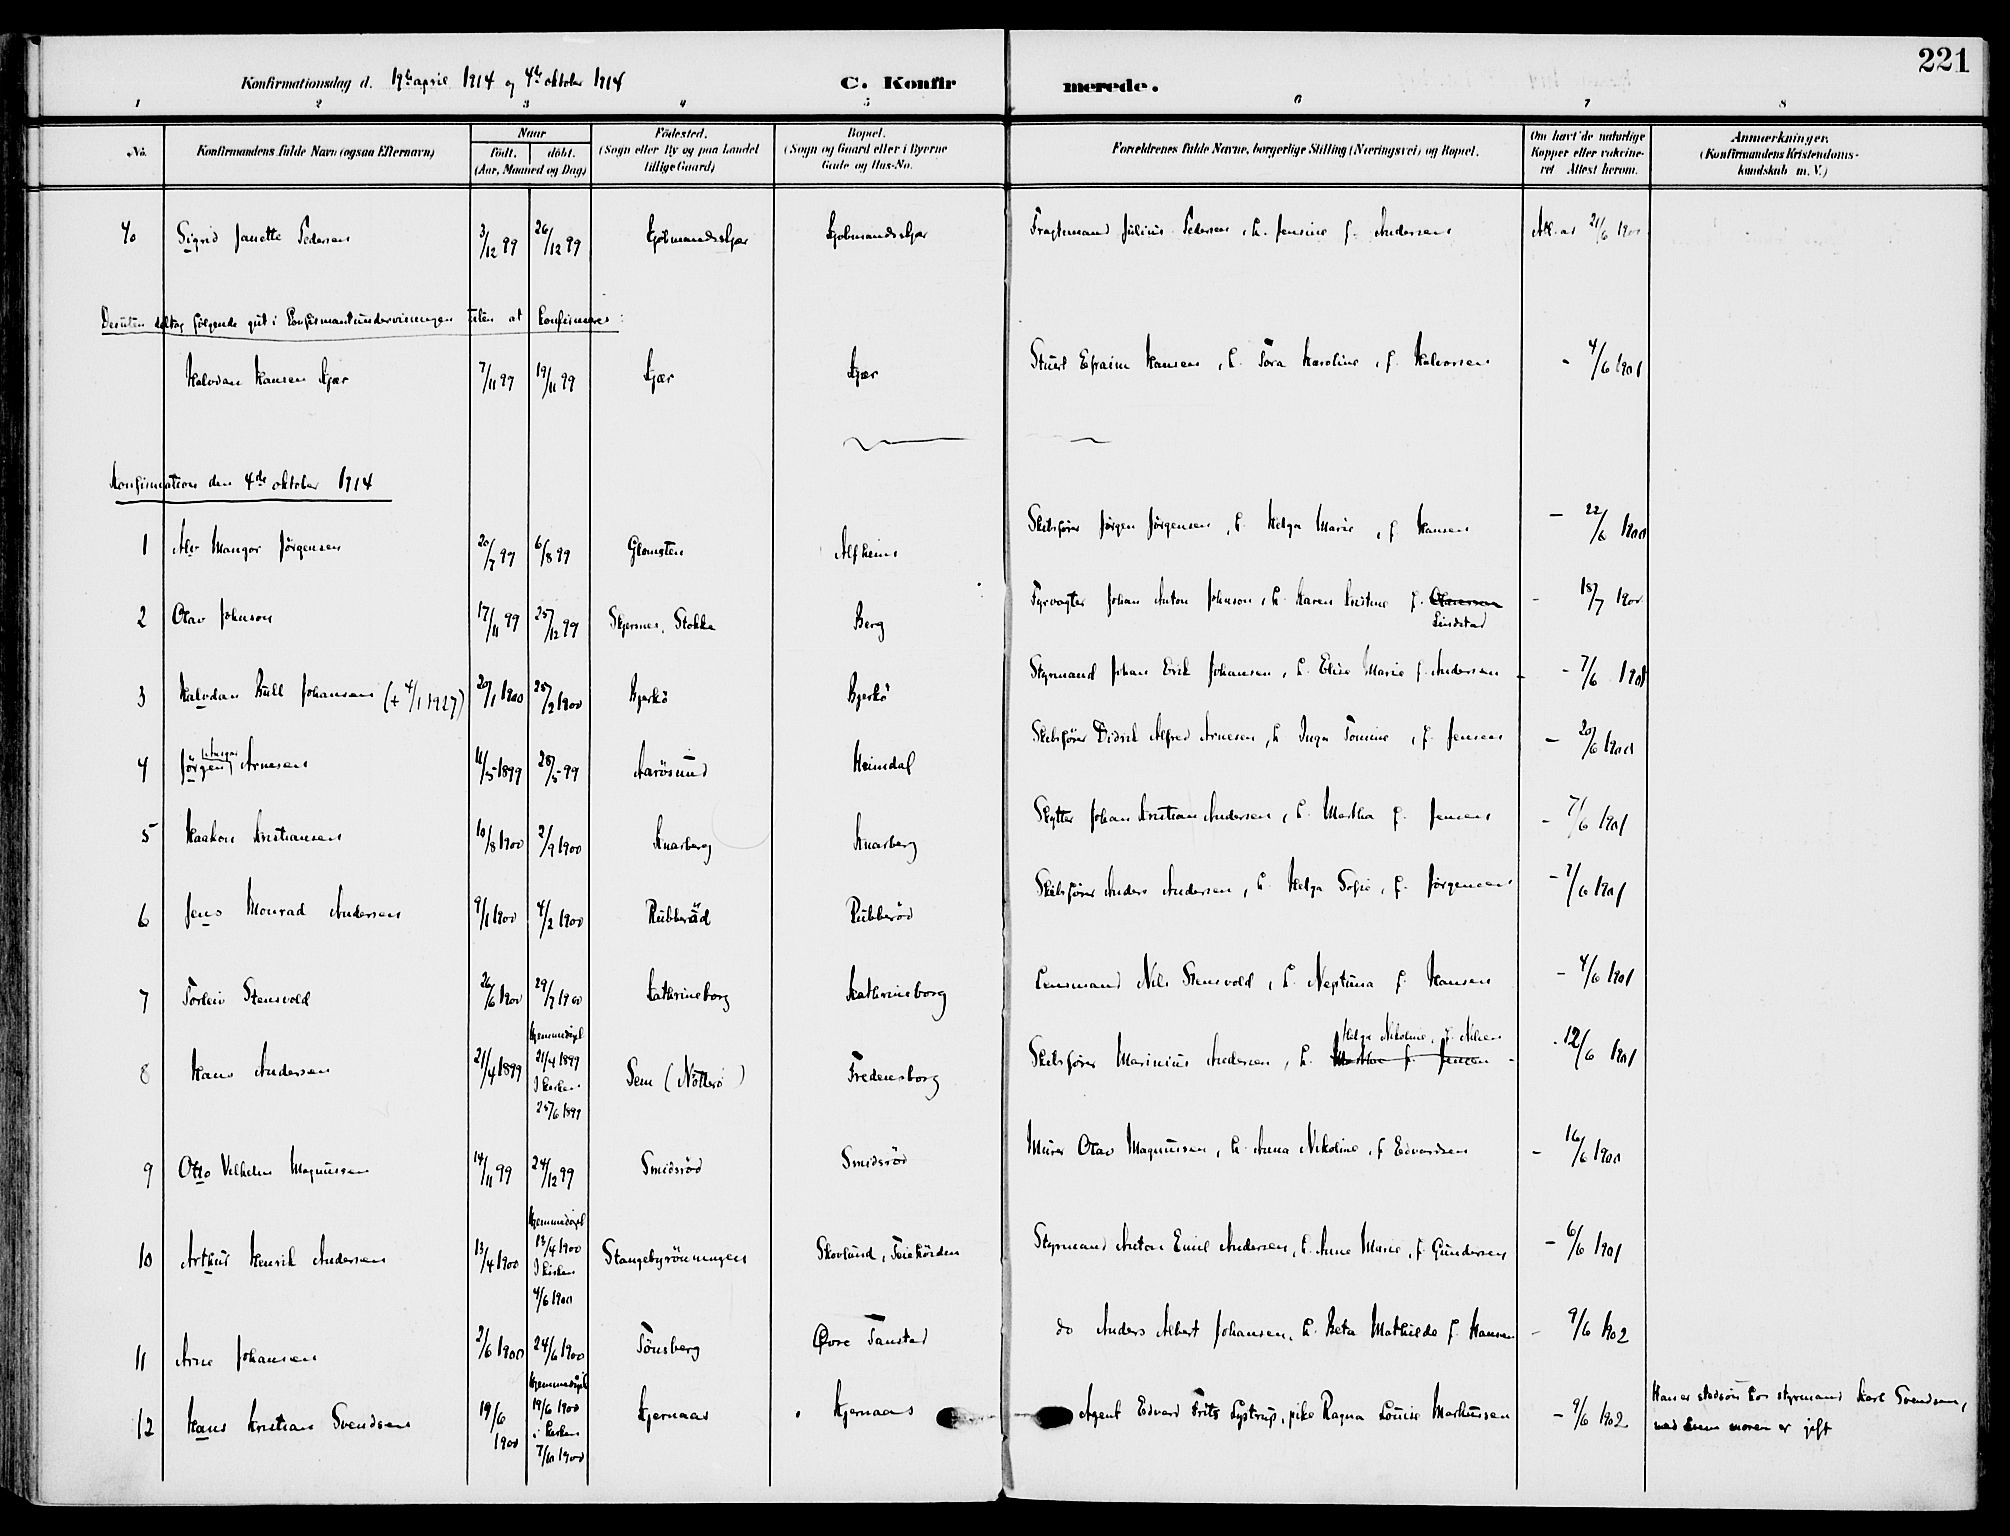 221
Konfirmationsdag d. 19de april 1914 og 4de oktober 1914 C. Konfir merede.
1 2 3 4 5 6 7 8
No. Konfirmandens fulde Navn (ogsaa Efternavn) Naar født. døbt. (Aar, Maaned og Dag) Fødested. (Sogn eller By og paa Landet tillige Gaard) Bopæl. (Sogn og Gaard eller i Byerne Gade og Hus-No. Forældrenes fulde Navne, borgerlige Stilling (Næringsvei) og Bopæl. Om havt de naturlige Kopper eller vakcineret Attest herom. Anmærkninger. (Konfirmandens Kristendomskundskab m. V.)
40 Sigrid Janette Pedersen 3/12 99 26/12 99 Kjøbmandskjær Kjøbmandskjær Fragtmand Julius Pedersen, h. Jensine f. Andersen Att. av 21/6 1900
Desuten deltog følgende gut i konfirmantundervisningen uten at konfirmeres:
Halvdan Hansen Kjær 7/11 99 19/11 99 Kjær Kjær Stuert Efraim Hansen, h. Tora Karoline, f. Halvorsen - 4/6 1901
Konfirmation den 4de oktober 1914
1 Alv Mangor Jørgensen 20/7 99 6/8 99 Glomsten Alfheim Skibsfører Jørgen Jørgensen, h. Helga Marie, f. Hansen - 22/6 1900
2 Olav Johnson 17/11 99 25/12 99 Skjersnes, Stokke Berg Fyrvogter Johan Anton Johnson, h. Karen Kristine f. Lindstad - 18/7 1900
3 Halvdan Bull Johansen (+ 4/1 1927) 20/1 1900 25/2 1900 Bjerkø Bjerkø Styrmand Johan Erik Johansen, h. Elise Marie f. Andersen - 7/6 1901
4 Jørgen Ansgar Arnesen 11/5 1899 28/5 99 Aarøsund Heimdal Skibsfører Didrik Alfred Arnesen, h. Inga Tomine, f. Jensen - 20/6 1900
5 Haakon Kristiansen 10/8 1900 2/9 1900 Knarberg Knarberg Skytter Johan Kristian Andersen, h. Martha f. Jensen - 7/6 1901
6 Jens Monrad Andersen 9/1 1900 4/2 1900 Rubberød Rubberød Skibsfører Anders Andersen, h. Helga Sofie, f. Jørgensen - 7/6 1901
7 Torleiv Stensvold 26/6 1900 29/7 1900 Kathrineborg Kathrineborg Lensmand Nils Stensvold, h. Neptuna f. Hansen - 4/6 1901
8 Hans Andersen 21/4 1899 Hjemmedøpt 21/4 1899 I kirken 25/6 1899 Sem (Nøtterø) Fredensborg Skibsfører Marinius Andersen, h. Martha f. Jensen Helga Nikoline, f. Nilsen - 12/6 1901
9 Otto Vilhelm Magnussen 14/11 99 24/12 99 Smidsrød Smidsrød Murer Olav Magnussen, h. Anna Nikoline, f. Edvardsen - 16/6 1900
10 Arthur Henrik Andersen 13/4 1900 Hjemmedøpt 13/4 1900 I kirken 4/6 1900 Stangebyrønningen Skovlund, Teiehøiden Styrmand Anton Emil Andersen, h. Anne Marie, f. Gundersen - 6/6 1901
11 Arne Johansen 2/6 1900 24/6 1900 Tønsberg Øvre Tanstad do Anders Albert Johansen, h. Beta Mathilde f. Hansen - 9/6 1902
12 Hans Kristian Svendsen 19/6 1900 Hjemmedøpt 19/6 1900 i kirken 7/10 1900 Kjernaas Kjernaas Agent Edvard Fritz Lystrup, pike Ragna Louise Markussen - 9/6 1902 Han er stedsøn hos styrmand Karl Svendsen, med hvem moren er gift